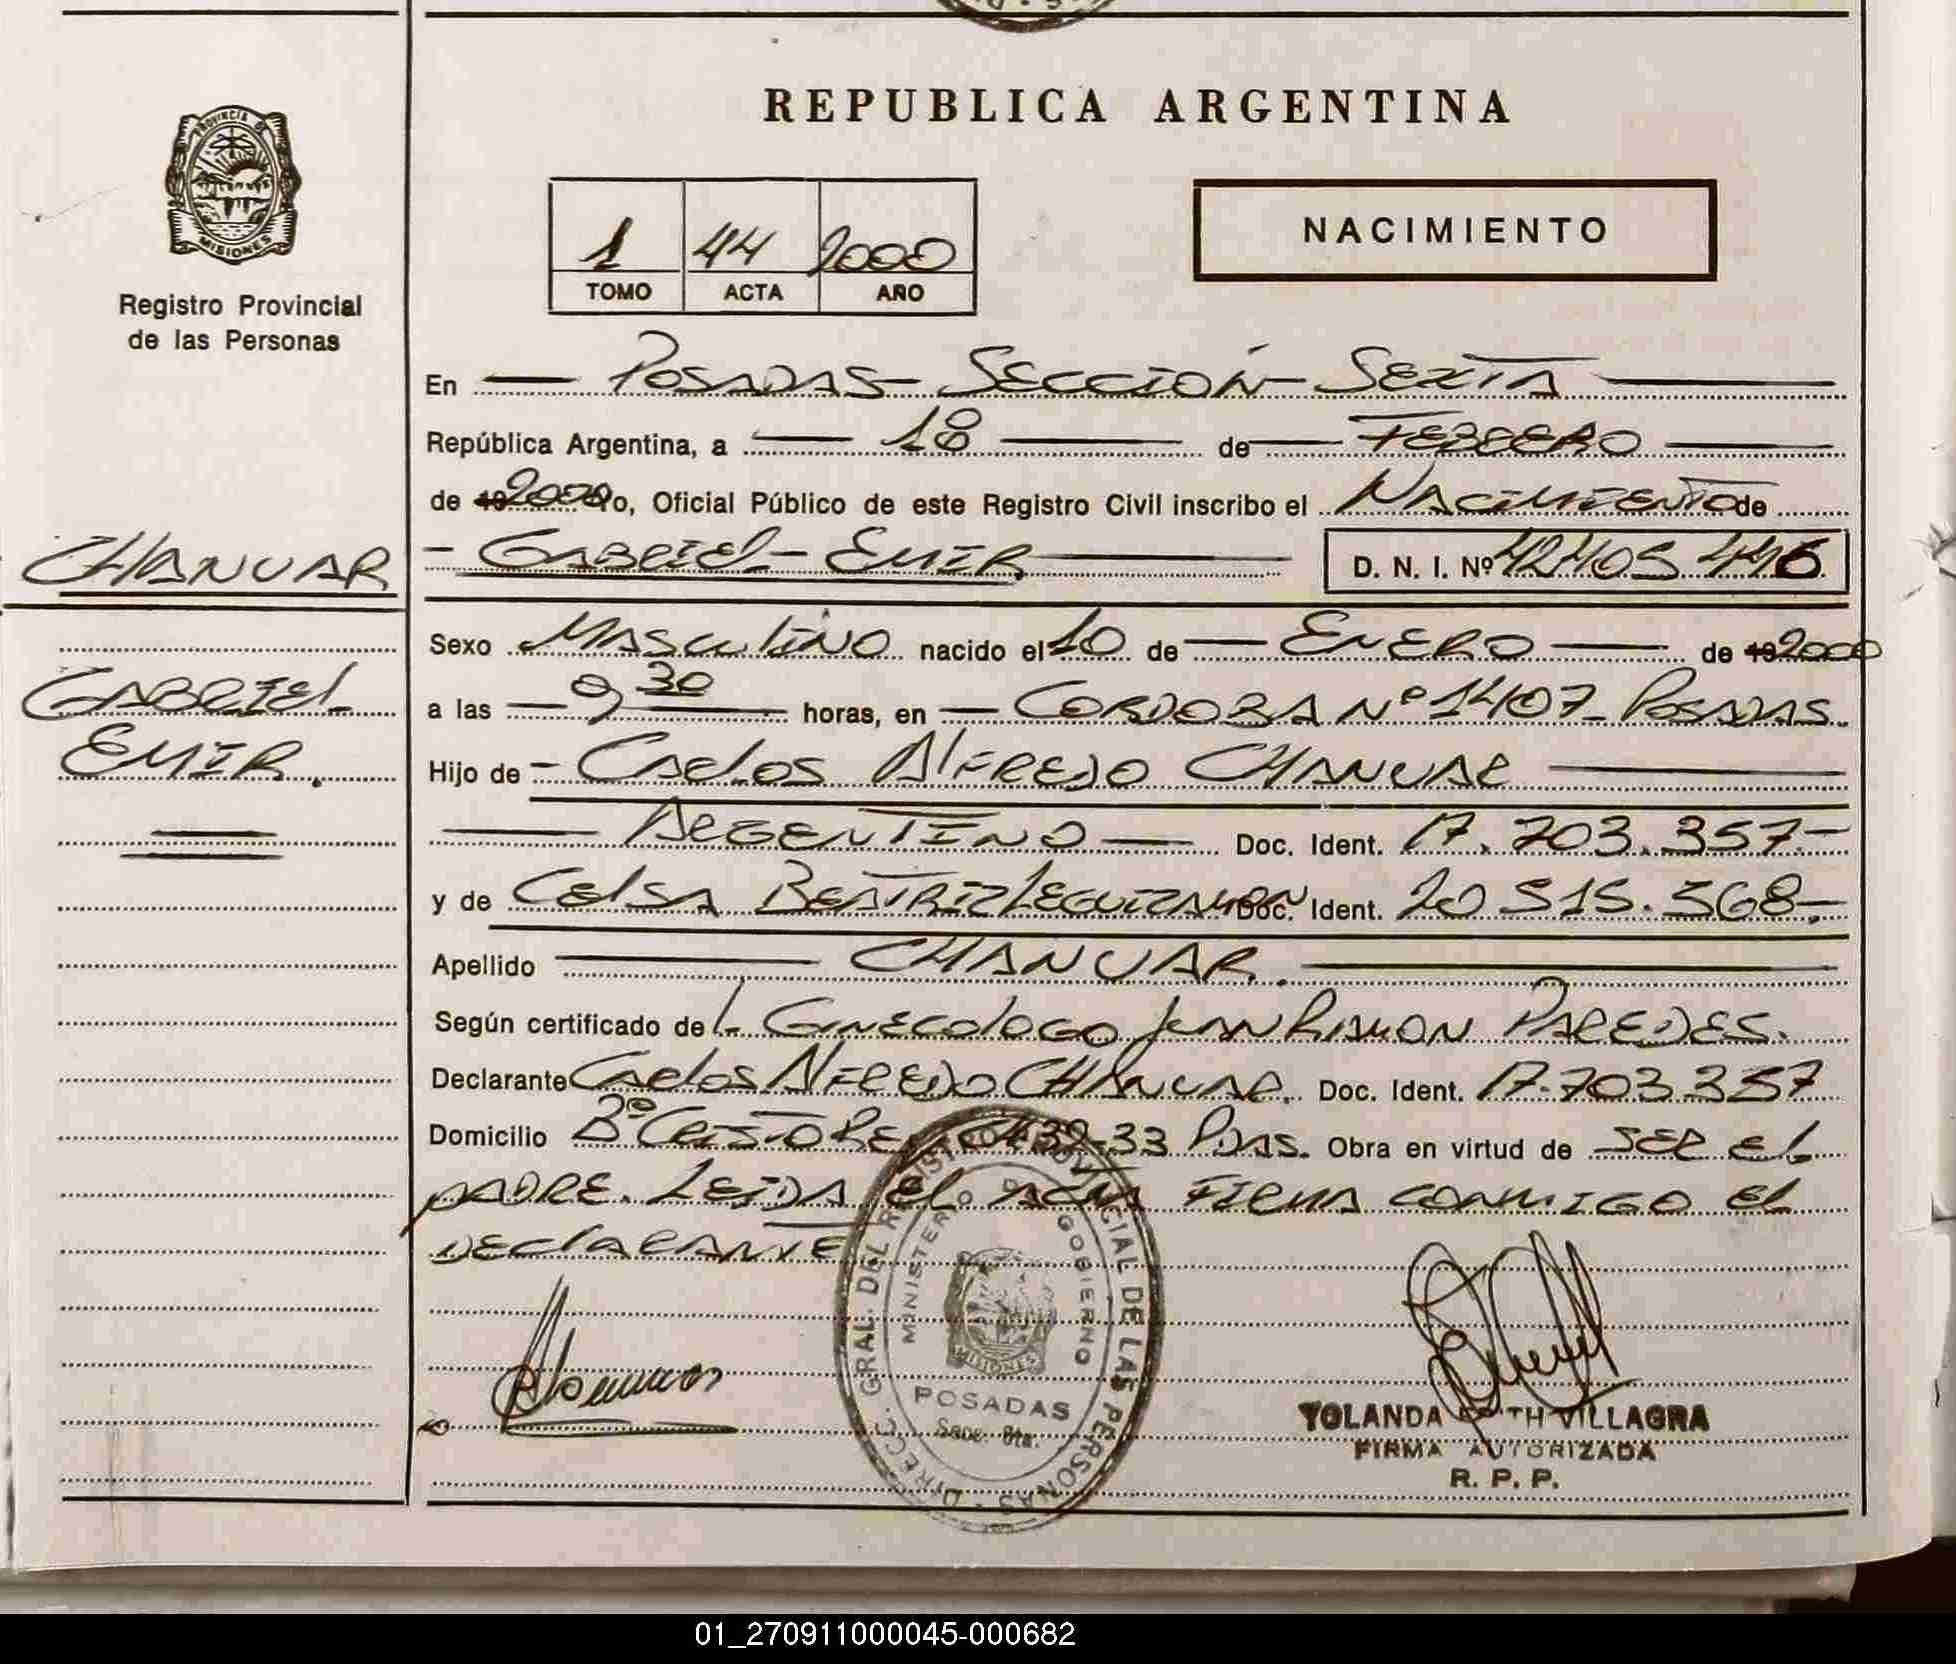 REPUBLICA ARGENTINA
PROVINCIA DE
MISIONES
Registro Provincial
de las Personas
1 44 2000
TOMO ACTA AÑO
NACIMIENTO
En POSADAS - SECCION - SEXTA
República Argentina, a 18 de FEBRERO
de 19 2000 Yo, Oficial Público de este Registro Civil inscribo el NACIMIENTO de
CHANUAR
- GABRIEL - EMIR D. N. I. Nº 42.405.446
Sexo MASCULINO nacido el 10 de ENERO de 19 2000
GABRIEL
a las 9 30 horas, en CORDOBA Nº 1407 - POSADAS.
EMIR.
Hijo de - CARLOS ALFREDO CHANUAR
ARGENTINO Doc. Ident. 17.703.357-
y de CELSA BEATRIZ LEGUIZAMON Doc. Ident. 20.515.568-
Apellido CHANUAR.
Según certificado de L. GINECOLOGO JUAN RAMON PAREDES.
Declarante CARLOS ALFREDO CHANUAR. Doc. Ident. 17.703.357
Domicilio Bº CRISTO REY 32-33 PDAS. Obra en virtud de SER EL
PADRE. LEIDA EL ACTA FIRMA CONMIGO EL
DECLARANTE
DIRECC. GRAL. DEL REGISTRO PROVINCIAL DE LAS PERSONAS
MINISTERIO DE GOBIERNO
MISIONES
POSADAS
Secc. 6ta.
YOLANDA EDITH VILLAGRA
FIRMA AUTORIZADA
R. P. P.
01_270911000045-000682